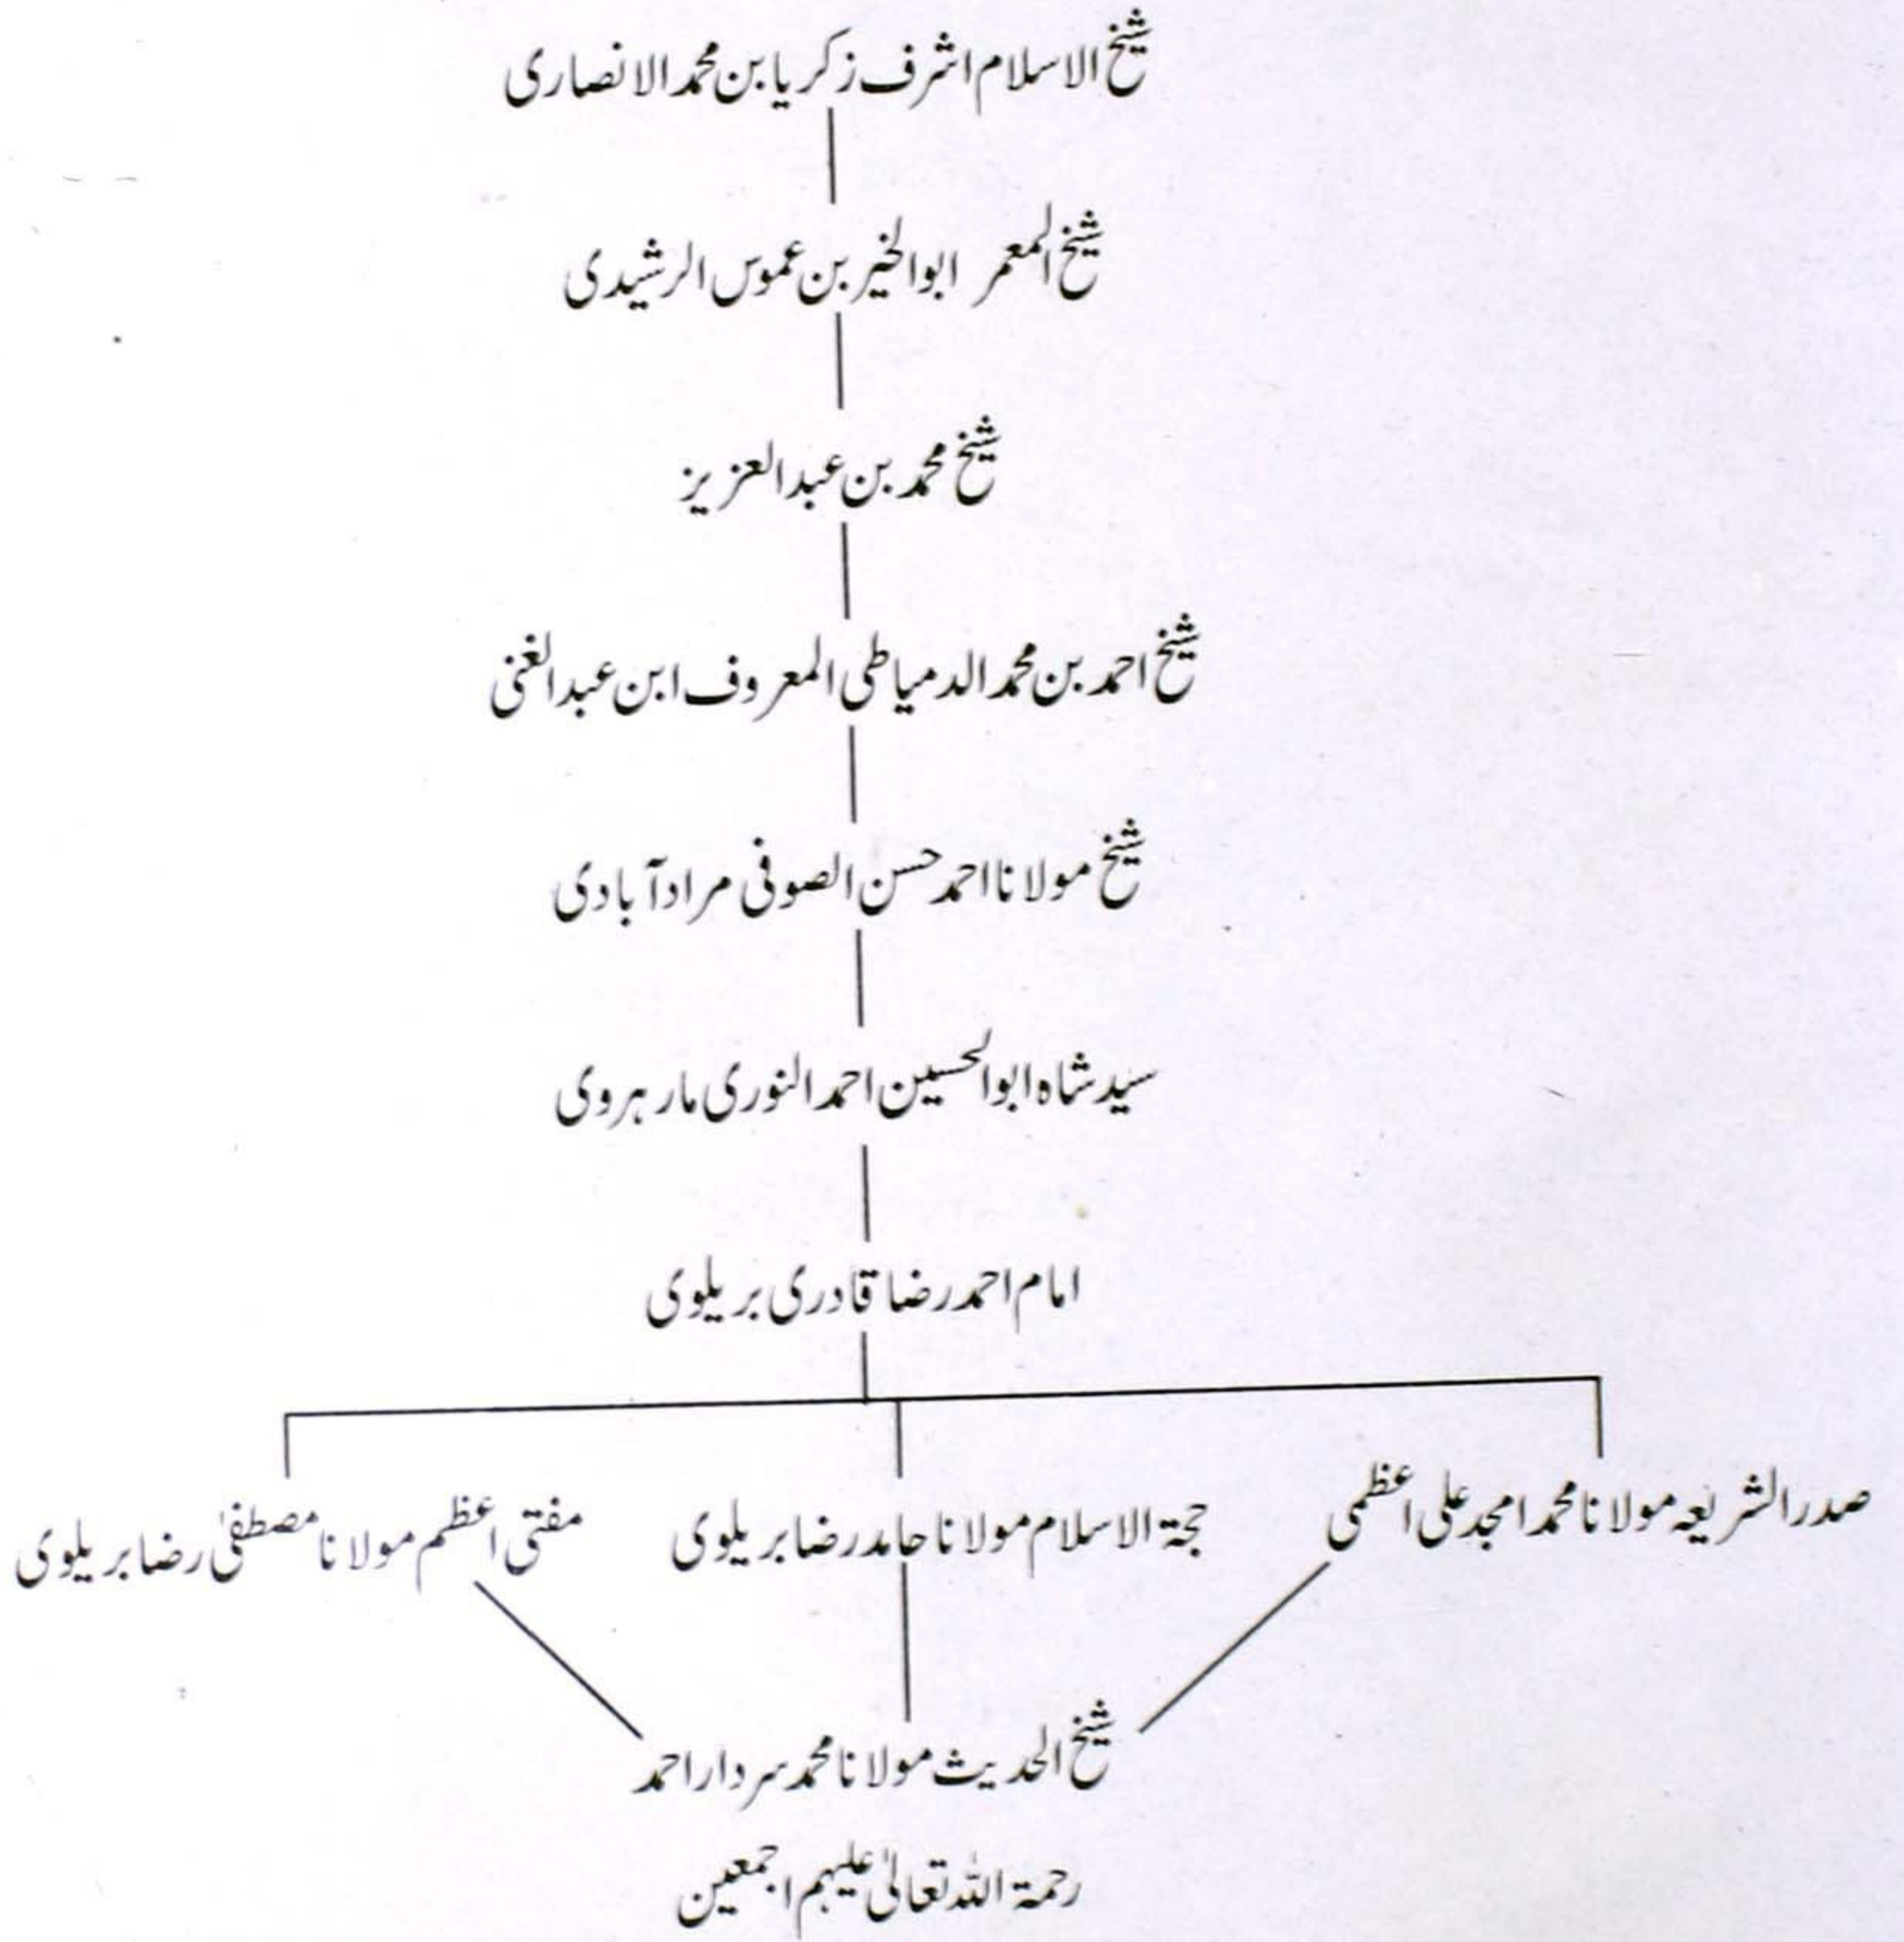 شیخ الاسلام اشرف زکریا بن محمد الانصاری
شیخ المعمر ابوالخیر بن عموس الرشیدی
شیخ محمد بن عبدالعزیز
شیخ احمد بن محمد الدمیاطی المعروف ابن عبدالغنی
شیخ مولانا احمد حسن الصوفی مرادآبادی
سید شاہ ابوالحسین احمد النوری مارہروی
امام احمد رضا قادری بریلوی
صدر الشریعہ مولانا محمد امجد علی اعظمی
حجۃ الاسلام مولانا حامد رضا بریلوی
مفتی اعظم مولانا مصطفیٰ رضا بریلوی
شیخ الحدیث مولانا محمد سردار احمد
رحمۃ اللہ تعالیٰ علیہم اجمعین